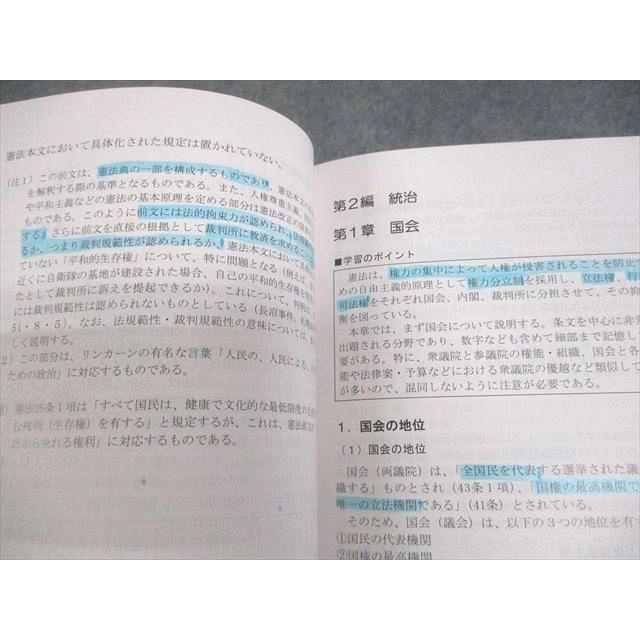 憲法本文において具体化された規定は置かれていない。
(注1) この前文は、憲法典の一部を構成するものであり、憲法本文の
を解釈する際の基準となるものである。また、人権尊重主義、
や平和主義などの憲法の基本原理を定める部分は憲法改正の
ものである。このように前文には法的拘束力が認められ、法規範性
する。さらに前文を直接の根拠として裁判所に救済を求めること
るか、つまり裁判規範性が認められるか、憲法本文において具
ていない「平和的生存権」について、特に問題となる(例えば、
近くに自衛隊の基地が建設された場合、自己の平和的生存権を
たとして裁判所に訴えを提起できるか)。これについて、判例は
には裁判規範性は認められないものとしている(長沼事件、札幌
51・8・5)。なお、法規範性・裁判規範性の意味については、
しく説明する。
2) この部分は、リンカーンの有名な言葉「人民の、人民による、
ための政治」に対応するものである。
憲法25条1項は「すべて国民は、健康で文化的な最低限度の生
む権利(生存権)を有する」と規定するが、これは、憲法前文
乏から免れる権利」に対応するものである。
第2編 統治
第1章 国会
■学習のポイント
憲法は、権力の集中によって人権が侵害されることを防止
めの自由主義的原理として権力分立制を採用し、立法権、行
司法権をそれぞれ国会、内閣、裁判所に分担させて、その抑
衡を図っている。
本章では、まず国会について説明する。条文を中心に非常
出題される分野であり、数字なども含めて細部まで記憶し
要がある。特に、衆議院と参議院の権能・組織、国会と各
能や法律案・予算などにおける衆議院の優越など類似して
が多いので、混同しないように注意が必要である。
1. 国会の地位
(1) 国会の地位
国会(両議院)は、「全国民を代表する選挙された議
織する」ものとされ(43条1項)、「国権の最高機関で
唯一の立法機関である」(41条)とされている。
そのため、国会(議会)は、以下の3つの地位を有す
①国民の代表機関
②国権の最高機関